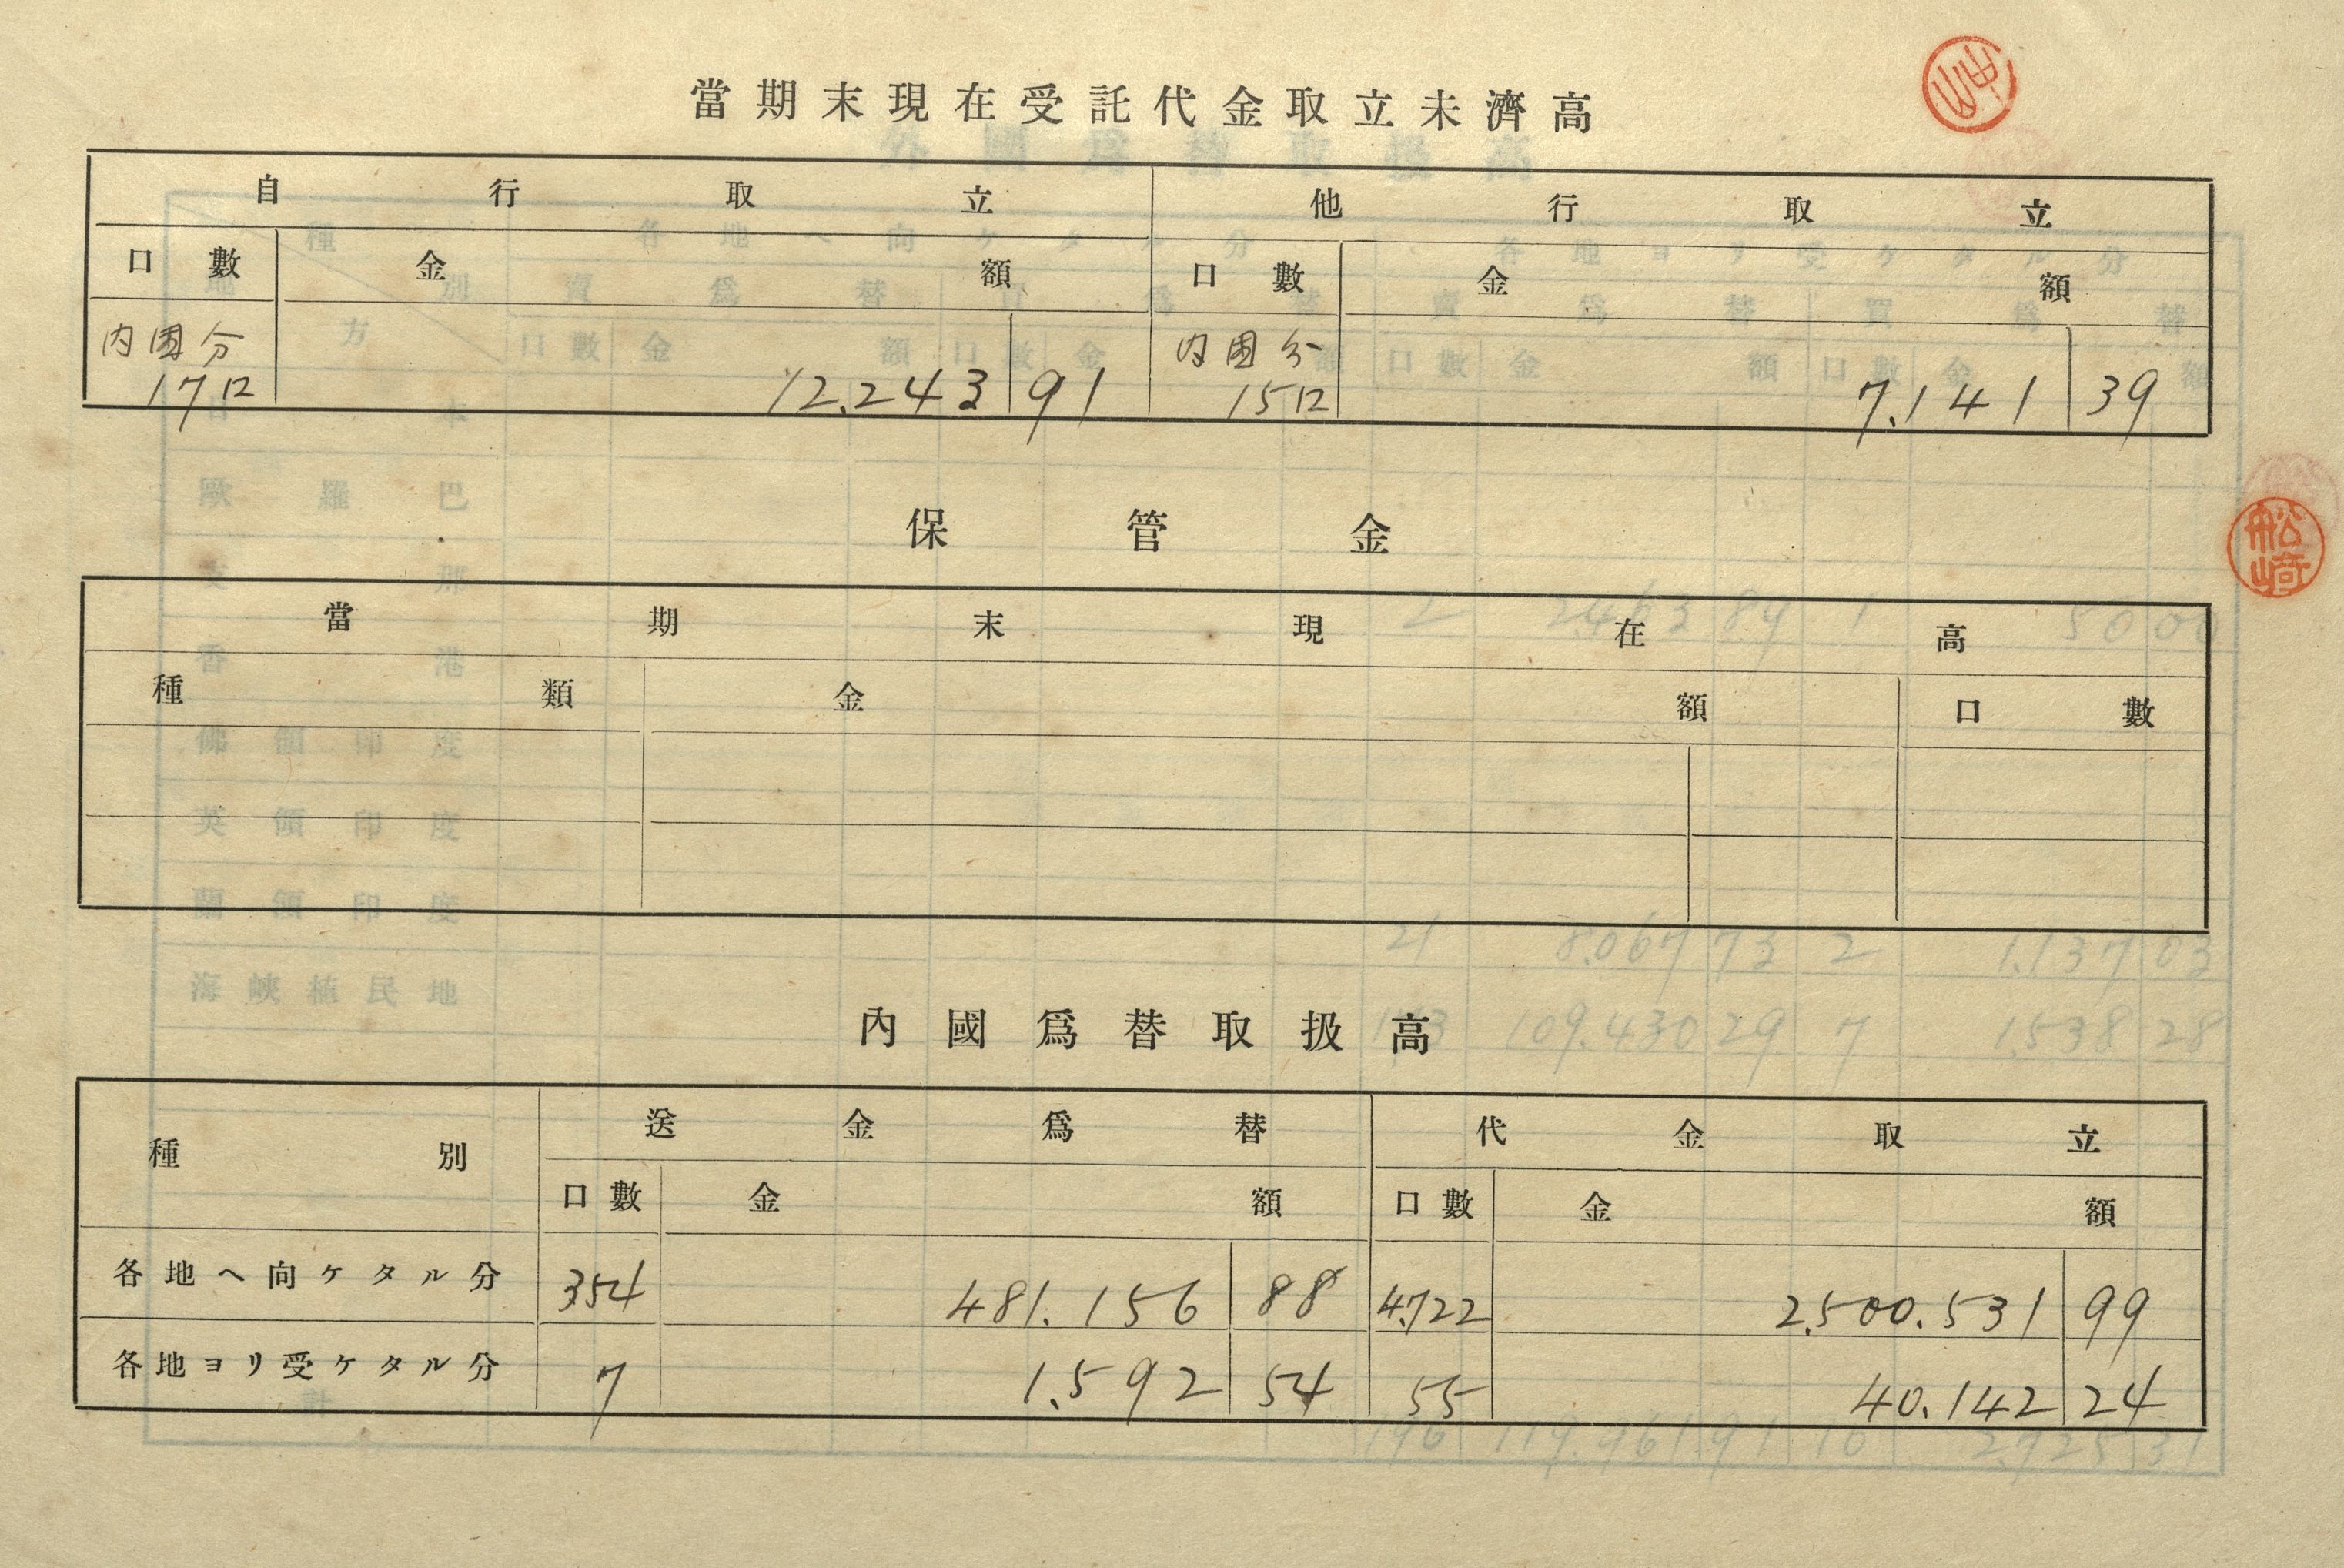 當期末現在受託代金取立未濟高
自行取立 他行取立
口數 金額 口數 金額
内国分 内国分
17口 12.243 91 15口 7.141 39
保管金
當期末現在高
種類 金額 口數
內國爲替取扱高
種別 送金爲替 代金取立
口數 金額 口數 金額
各地へ向ケタル分 354 481.156 88 4.722 2.500.531 99
各地ヨリ受ケタル分 7 1.592 54 55 40.142 24
松崎